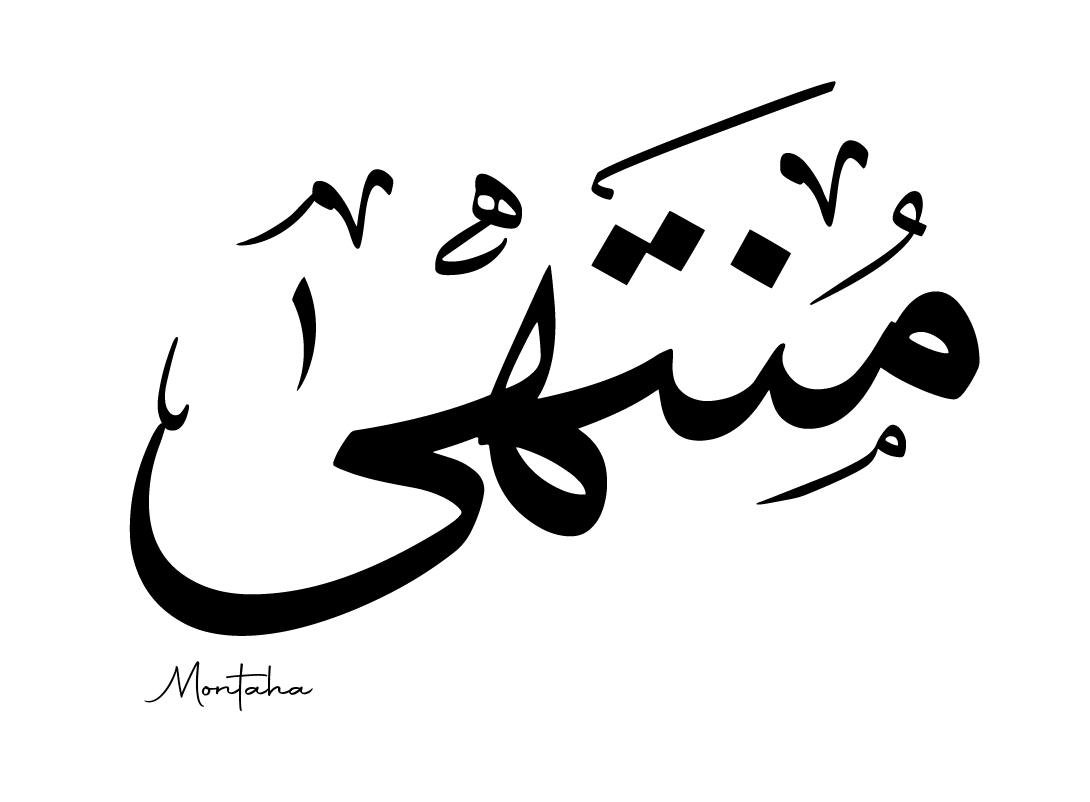 مُنتهىٰ
Montaha